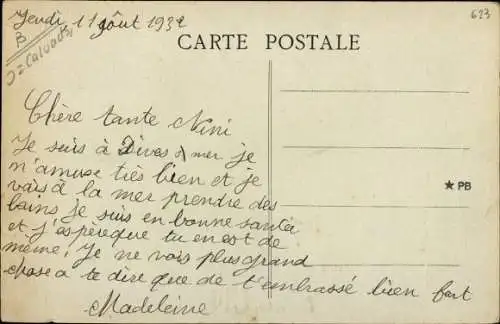 Jeudi, 11 août 1932
623
B
CARTE POSTALE
Chère tante Nini
Je suis à Dives s/ mer je
m'amuse très bien et je
vais à la mer prendre des
bains je suis en bonne santée
et j'espèreque tu en est de
même, Je ne vois plus grand
chose a te dire que de t'embrassé bien fort
Madeleine
★ PB